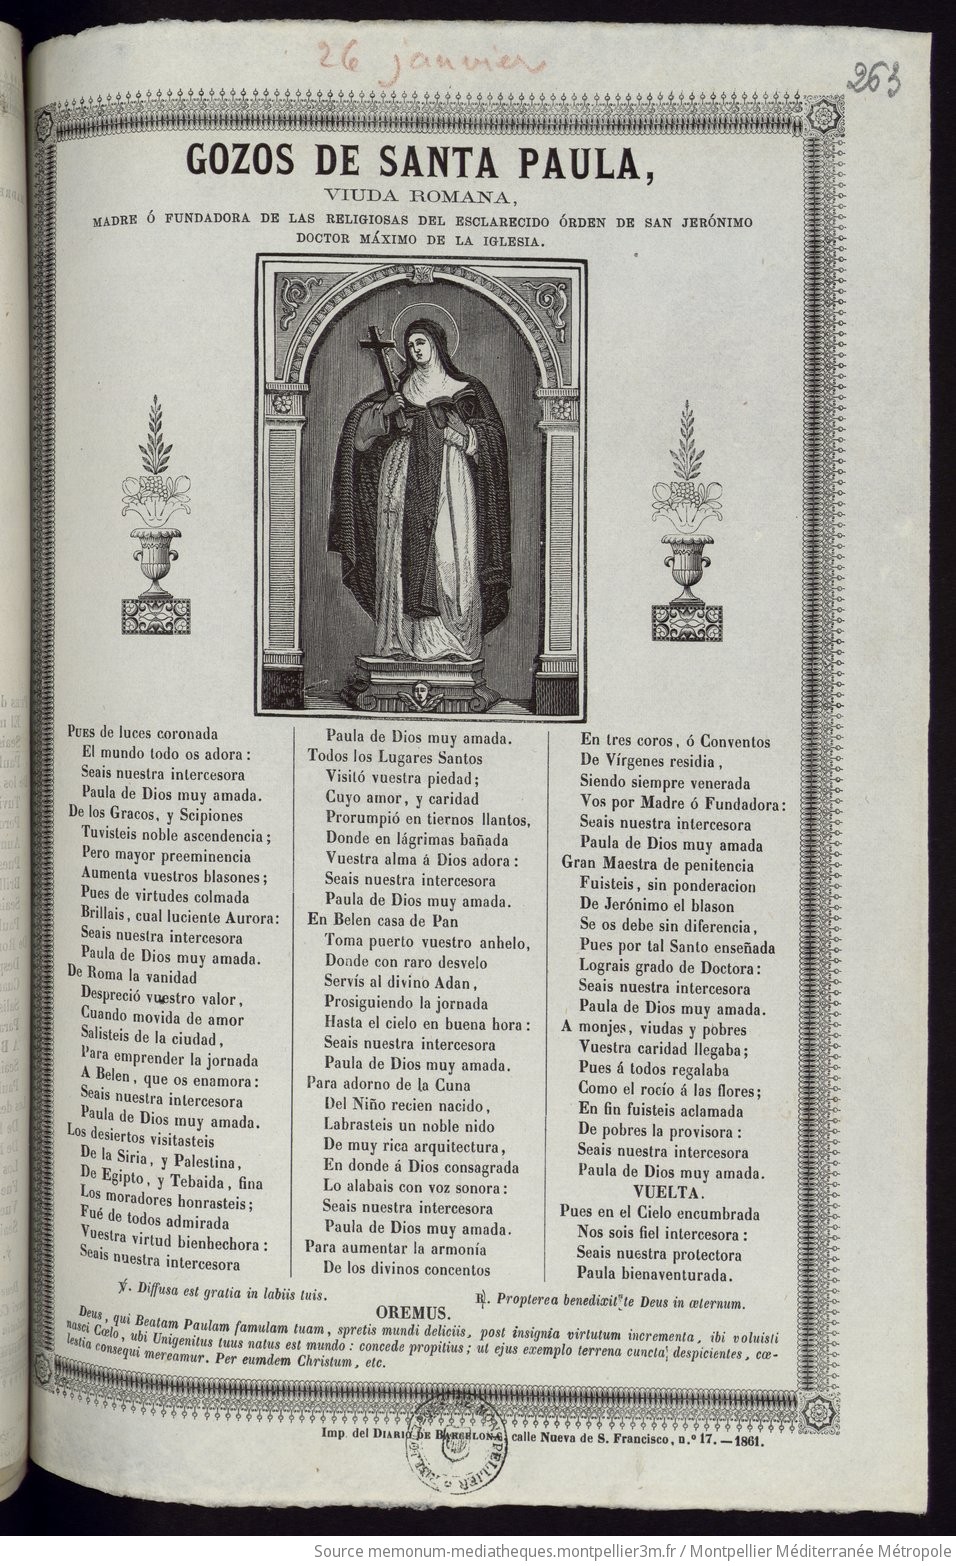 26 janvier
263
GOZOS DE SANTA PAULA,
VIUDA ROMANA,
MADRE Ó FUNDADORA DE LAS RELIGIOSAS DEL ESCLARECIDO ÓRDEN DE SAN JERÓNIMO
DOCTOR MÁXIMO DE LA IGLESIA.
PUES de luces coronada
El mundo todo os adora:
Seais nuestra intercesora
Paula de Dios muy amada.
De los Gracos, y Scipiones
Tuvisteis noble ascendencia;
Pero mayor preeminencia
Aumenta vuestros blasones;
Pues de virtudes colmada
Brillais, cual luciente Aurora:
Seais nuestra intercesora
Paula de Dios muy amada.
De Roma la vanidad
Despreció vuestro valor,
Cuando movida de amor
Salisteis de la ciudad,
Para emprender la jornada
A Belen, que os enamora:
Seais nuestra intercesora
Paula de Dios muy amada.
Los desiertos visitasteis
De la Siria, y Palestina,
De Egipto, y Tebaida, fina
Los moradores honrasteis;
Fué de todos admirada
Vuestra virtud bienhechora:
Seais nuestra intercesora
Paula de Dios muy amada.
Todos los Lugares Santos
Visitó vuestra piedad;
Cuyo amor, y caridad
Prorumpió en tiernos llantos,
Donde en lágrimas bañada
Vuestra alma á Dios adora:
Seais nuestra intercesora
Paula de Dios muy amada.
En Belen casa de Pan
Toma puerto vuestro anhelo,
Donde con raro desvelo
Servís al divino Adan,
Prosiguiendo la jornada
Hasta el cielo en buena hora:
Seais nuestra intercesora
Paula de Dios muy amada.
Para adorno de la Cuna
Del Niño recien nacido,
Labrasteis un noble nido
De muy rica arquitectura,
En donde á Dios consagrada
Lo alabais con voz sonora:
Seais nuestra intercesora
Paula de Dios muy amada.
Para aumentar la armonía
De los divinos concentos
En tres coros, ó Conventos
De Vírgenes residia,
Siendo siempre venerada
Vos por Madre ó Fundadora:
Seais nuestra intercesora
Paula de Dios muy amada
Gran Maestra de penitencia
Fuisteis, sin ponderacion
De Jerónimo el blason
Se os debe sin diferencia,
Pues por tal Santo enseñada
Lograis grado de Doctora:
Seais nuestra intercesora
Paula de Dios muy amada.
A monjes, viudas y pobres
Vuestra caridad llegaba;
Pues á todos regalaba
Como el rocío á las flores;
En fin fuisteis aclamada
De pobres la provisora:
Seais nuestra intercesora
Paula de Dios muy amada.
VUELTA.
Pues en el Cielo encumbrada
Nos sois fiel intercesora:
Seais nuestra protectora
Paula bienaventurada.
℣. Diffusa est gratia in labiis tuis.
℟. Propterea benedixit te Deus in æternum.
OREMUS.
Deus, qui Beatam Paulam famulam tuam, spretis mundi deliciis, post insignia virtutum incrementa, ibi voluisti
nasci Cœlo, ubi Unigenitus tuus natus est mundo: concede propitius; ut ejus exemplo terrena cuncta despicientes, cœ-
lestia consequi mereamur. Per eumdem Christum, etc.
Imp. del DIARIO DE BARCELONA, calle Nueva de S. Francisco, n.º 17.—1861.
Source memonum-mediatheques.montpellier3m.fr / Montpellier Méditerranée Métropole